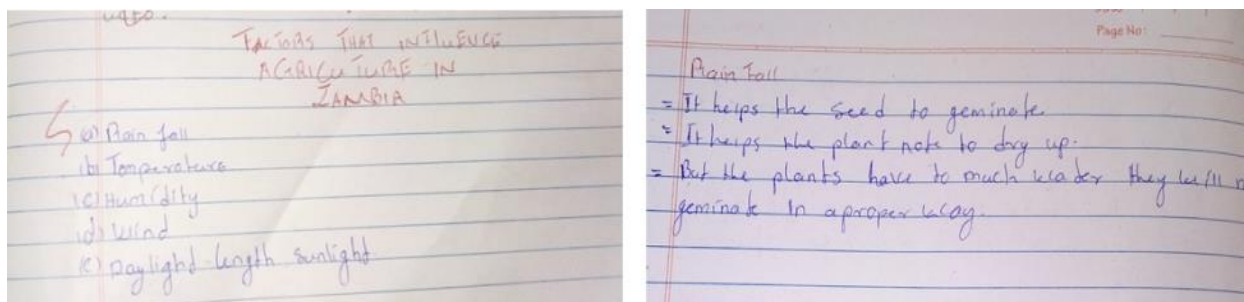 FACTORS THAT INFLUENCE
AGRICUTURE IN
ZAMBIA
(a) Rain fall
(b) Temperature
(c) Humidity
(d) Wind
(e) Daylight-length sunlight
Page No:
Rain Fall
= It helps the seed to geminate.
= It helps the plant note to dry up.
= But the plants have to much water they will
geminate in a proper way.